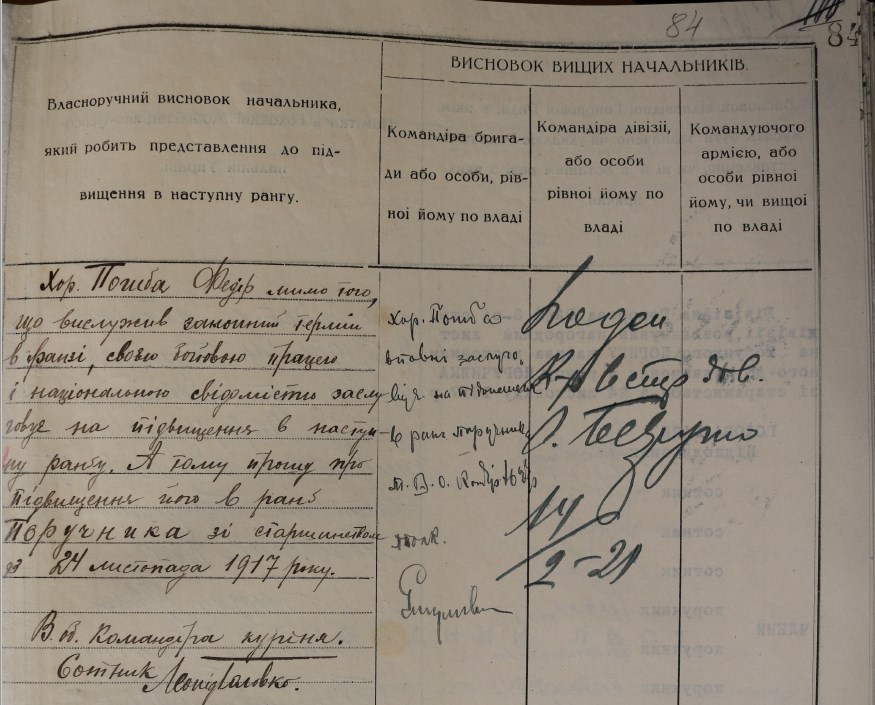 84
84
ВИСНОВОК ВИЩИХ НАЧАЛЬНИКІВ.
Власноручний висновок начальника,
який робить представлення до під-
вищення в наступну рангу.
Командіра брига-
ди або особи, рів-
ної йому по владі
Командіра дівізії,
або особи
рівної йому по
владі
Командуючого
армією, або
особи рівної
йому, чи вищої
по владі
Хор. Погиба Федір мимо того,
що вислужив законний термін
в ранзі, своєю бойовою працею
і національною свідомістю заслу-
говує на підвищення в наступ-
ну рангу. А тому прошу про
підвищення його в ранг
Поручника зі старшинством
з 24 листопада 1917 року.
В. об. Командіра куріня.
Сотник
Хор. Погиба
вповні заслуго-
вує на підвищення
в ранг поручника
полк.
14
2-21